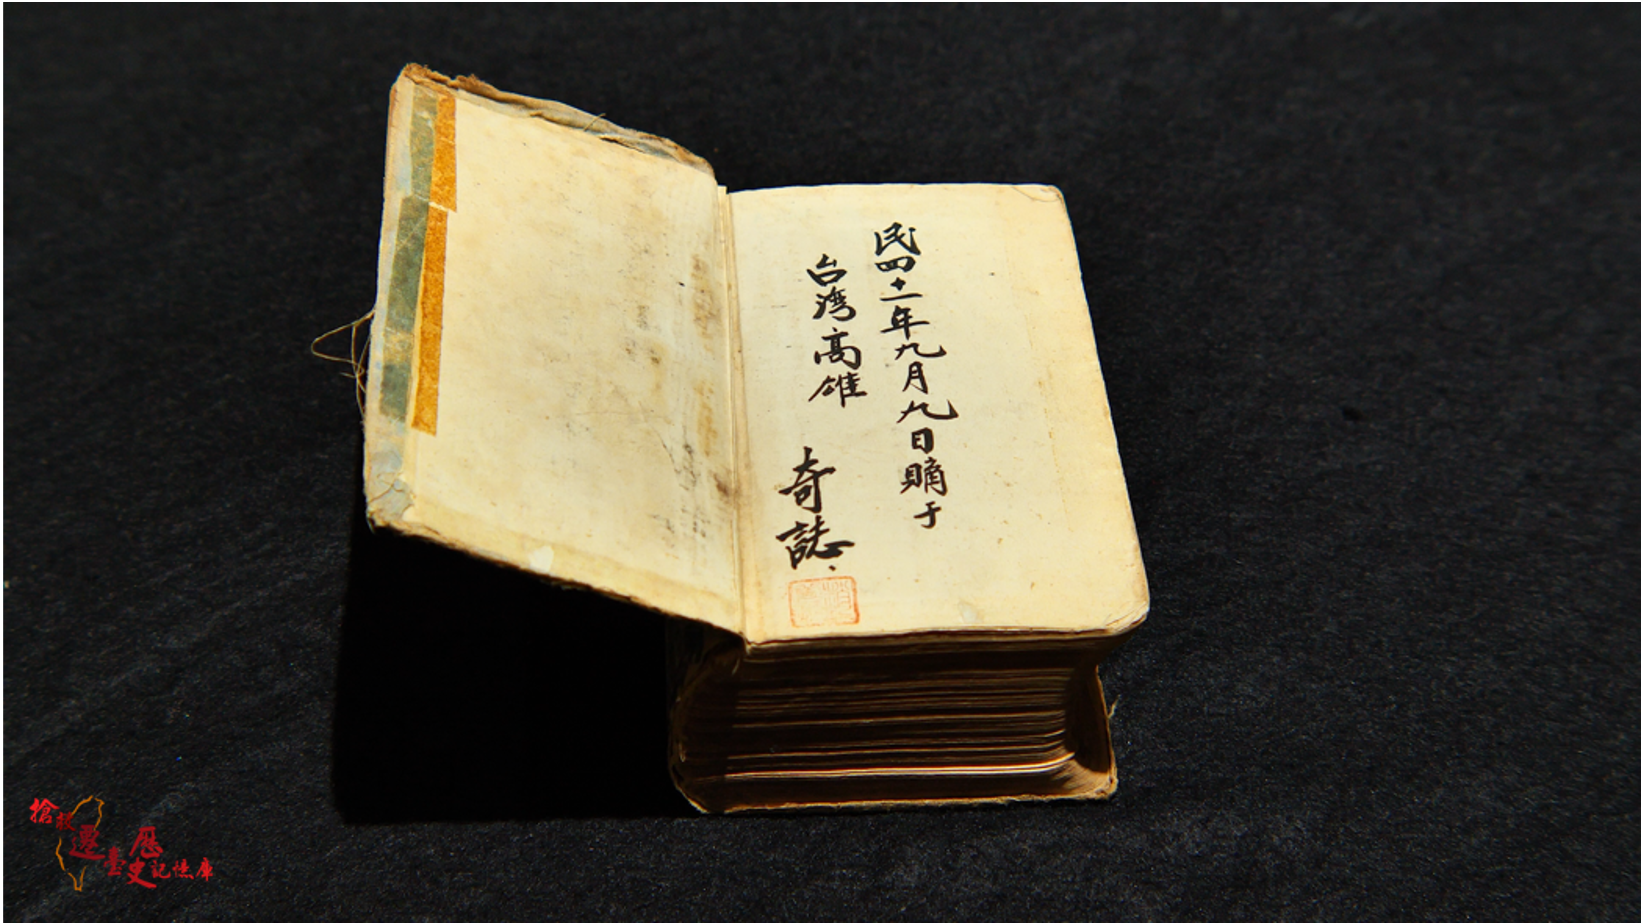 民四十一年九月九日購于
台湾高雄 奇誌.
搶救遷臺歷史記憶庫